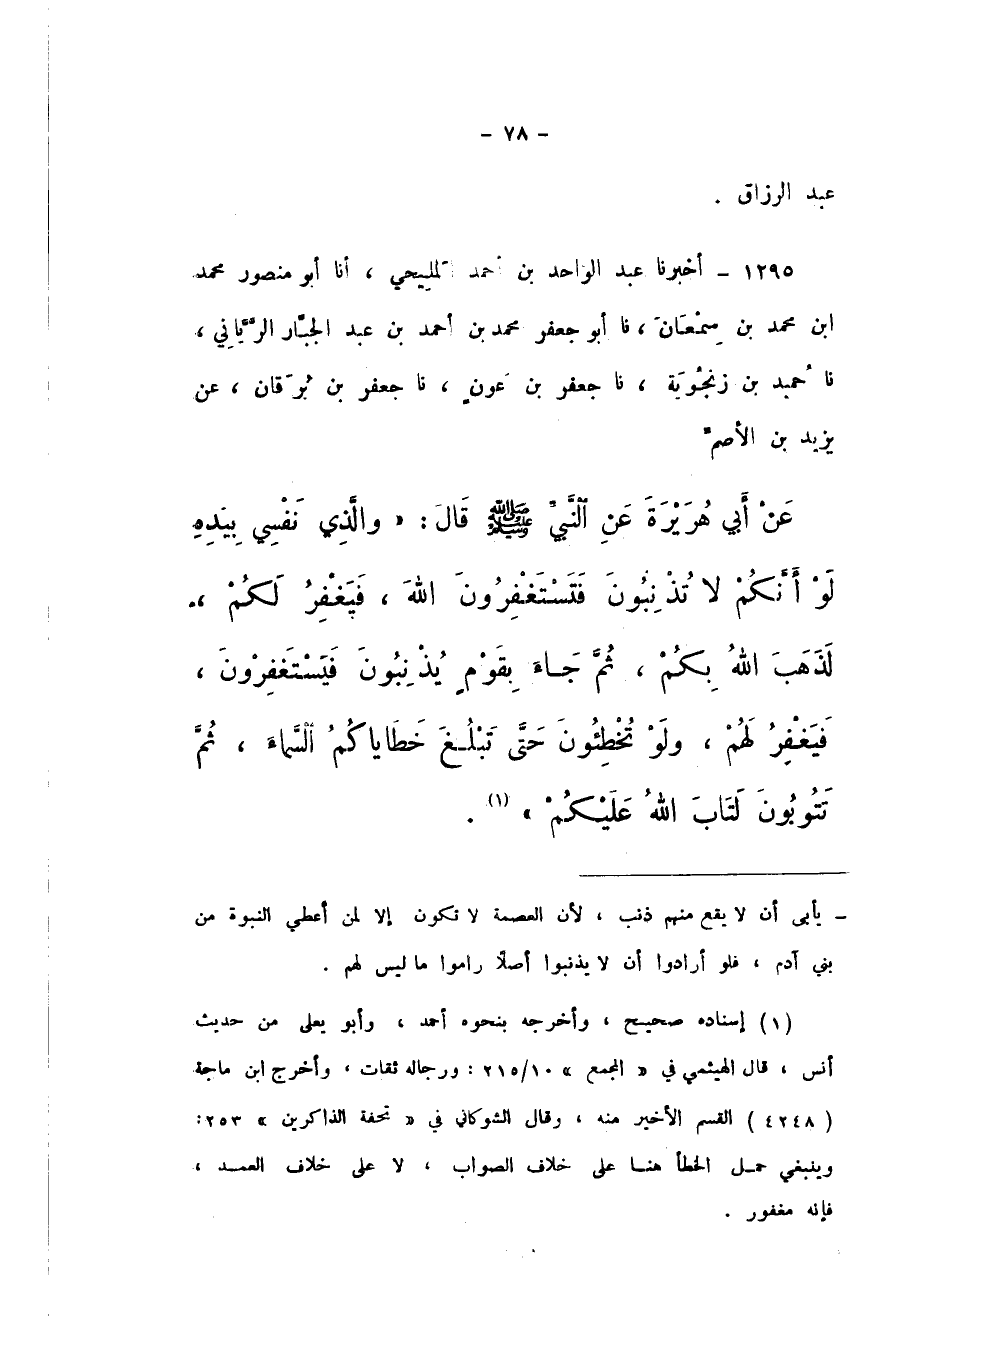 - ٧٨ -
عبد الرزاق .
١٢٩٥ - أخبرنا عبد الواحد بن أحمد المليحي ، أنا أبو منصور محمد
ابن محمد بن سِمْعَانَ ، نا أبو جعفر محمد بن أحمد بن عبد الجبّار الرَّيّاني ،
نا حُميد بن زنجُويَة ، نا جعفر بن عَونٍ ، نا جعفر بن بُرقان ، عن
يزيد بن الأصمّ
عَنْ أَبي هُرَيْرَةَ عَنِ النَّبيِّ ﷺ قَالَ : « والَّذِي نَفْسِي بِيَدِهِ
لَوْ أَنَّكُمْ لا تُذْنِبُونَ فَتَسْتَغْفِرُونَ اللهَ ، فَيَغْفِرُ لَكُمْ ،
لَذَهَبَ اللهُ بِكُمْ ، ثُمَّ جَاءَ بِقَوْمٍ يُذْنِبُونَ فَيَسْتَغفِرْونَ ،
فَيَغْفِرُ لَهُمْ ، ولَوْ تُخْطِئُونَ حَتَّى تَبْلُغَ خَطَاياكُمُ السَّمَاءَ ، ثُمَّ
تَتُوبُونَ لَتَابَ اللهُ عَلَيْكُمْ » (١) .
- يأبى أن لا يقع منهم ذنب ، لأن العصمة لا تكون إلا لمن أعطي النبوة من
بني آدم ، فلو أرادوا أن لا يذنبوا أصلًا راموا ما ليس لهم .
(١) إسناده صحيح ، وأخرجه بنحوه أحمد ، وأبو يعلى من حديث
أنس ، قال الهيثمي في « المجمع » ٢١٥/١٠ : ورجاله ثقات ، وأخرج ابن ماجة
( ٤٢٤٨ ) القسم الأخير منه ، وقال الشوكاني في « تحفة الذاكرين » ٢٥٣ :
وينبغي حمل الخطأ هنا على خلاف الصواب ، لا على خلاف العمد ،
فإنه مغفور .